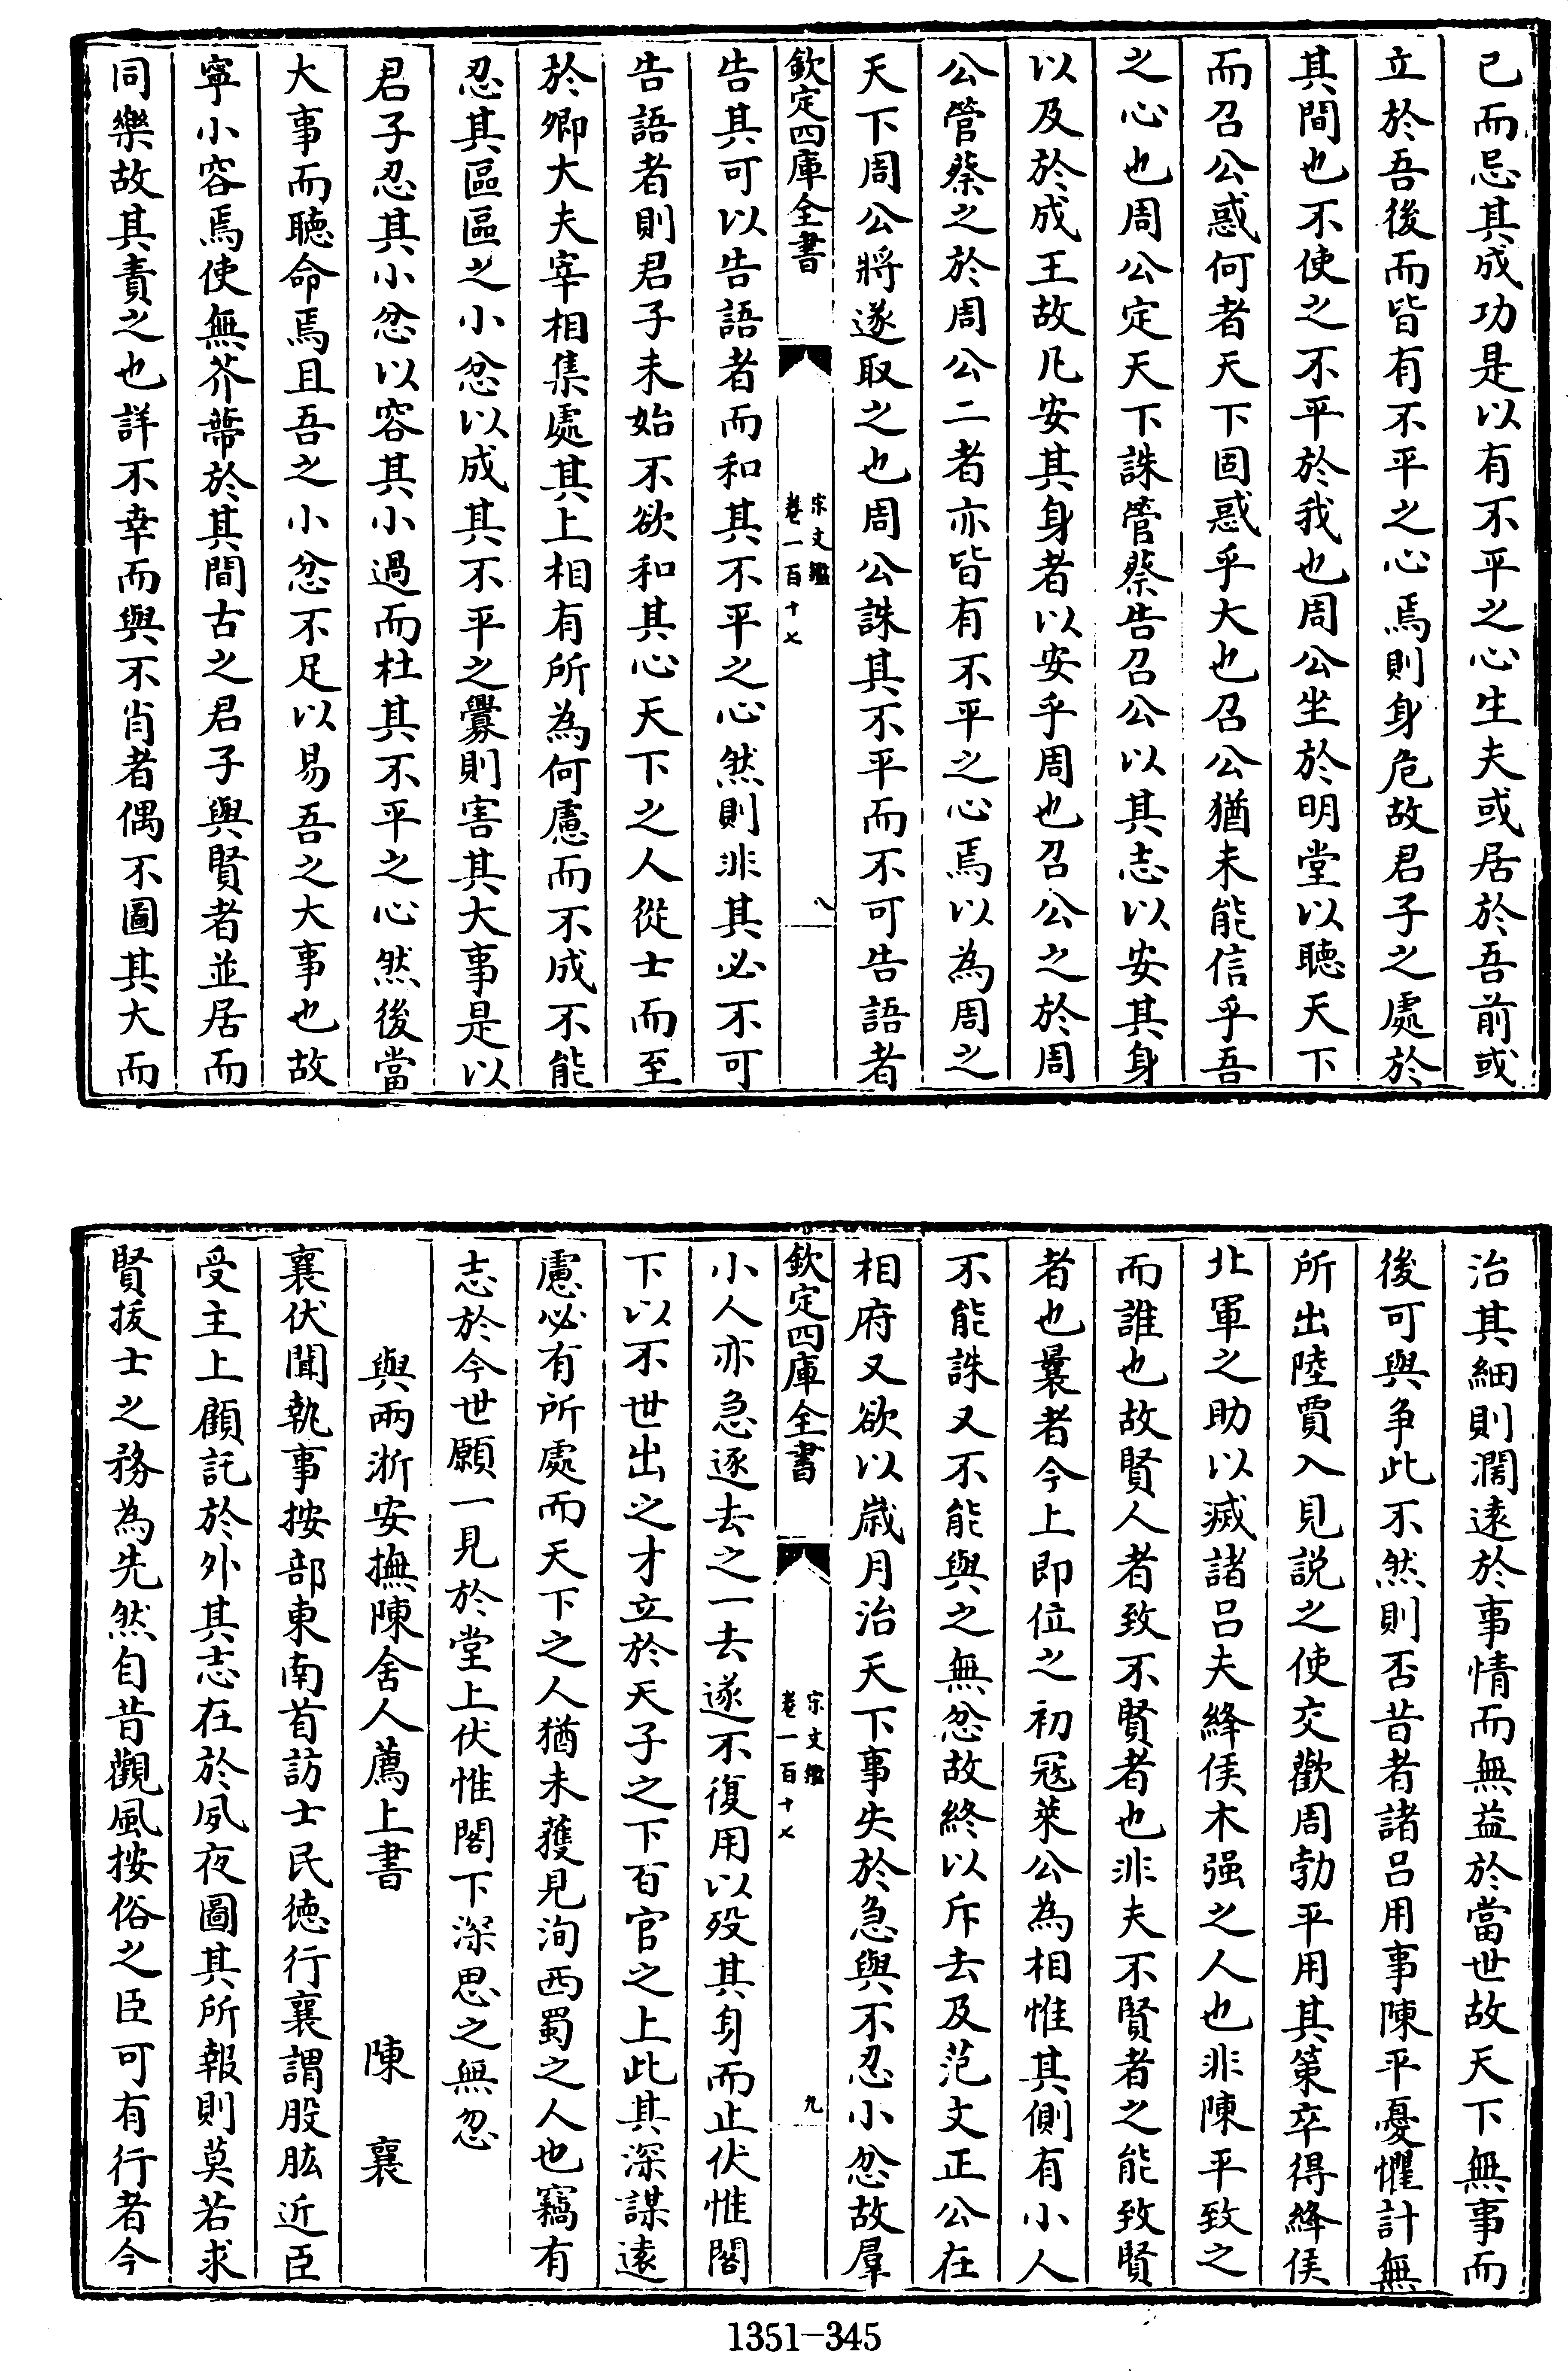 已而忌其成功是以有不平之心生夫或居於吾前或
立於吾後而皆有不平之心焉則身危故君子之處於
其間也不使之不平於我也周公坐於明堂以聽天下
而召公惑何者天下固惑乎大也召公猶未能信乎吾
之心也周公定天下誅管蔡告召公以其志以安其身
以及於成王故凡安其身者以安乎周也召公之於周
公管蔡之於周公二者亦皆有不平之心焉以為周之
天下周公將遂取之也周公誅其不平而不可告語者
欽定四庫全書
宋文鑑
卷一百十七
八
告其可以告語者而和其不平之心然則非其必不可
告語者則君子未始不欲和其心天下之人從士而至
於卿大夫宰相集處其上相有所為何慮而不成不能
忍其區區之小忿以成其不平之釁則害其大事是以
君子忍其小忿以容其小過而杜其不平之心然後當
大事而聽命焉且吾之小忿不足以易吾之大事也故
寧小容焉使無芥蔕於其間古之君子與賢者並居而
同樂故其責之也詳不幸而與不肖者偶不圖其大而
治其細則濶逺於事情而無益於當世故天下無事而
後可與争此不然則否昔者諸吕用事陳平憂懼計無
所出陸賈入見説之使交歡周勃平用其策卒得絳侯
北軍之助以滅諸吕夫絳侯木强之人也非陳平致之
而誰也故賢人者致不賢者也非夫不賢者之能致賢
者也曩者今上即位之初冦萊公為相惟其側有小人
不能誅又不能與之無忿故終以斥去及范文正公在
相府又欲以歳月治天下事失於急與不忍小忿故羣
欽定四庫全書
宋文鑑
卷一百十七
九
小人亦急逐去之一去遂不復用以殁其身而止伏惟閣
下以不世出之才立於天子之下百官之上此其深謀逺
慮必有所處而天下之人猶未獲見洵西蜀之人也竊有
志於今世願一見於堂上伏惟閣下深思之無忽
與兩淛安撫陳舍人薦士書 陳襄
襄伏聞執事按部東南首訪士民徳行襄謂股肱近臣
受主上顧託於外其志在於夙夜圖其所報則莫若求
賢拔士之務為先然自昔觀風按俗之臣可有行者今
1351-345